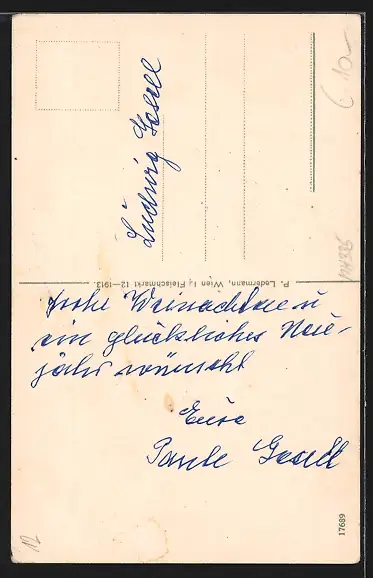 Ludwig Gosell
P. Ledermann, Wien I., Fleischmarkt 12—1913.
frohe Weinachten u
ein glückliches Neu-
jahr wünscht
Eure
Tante Gosell
17689